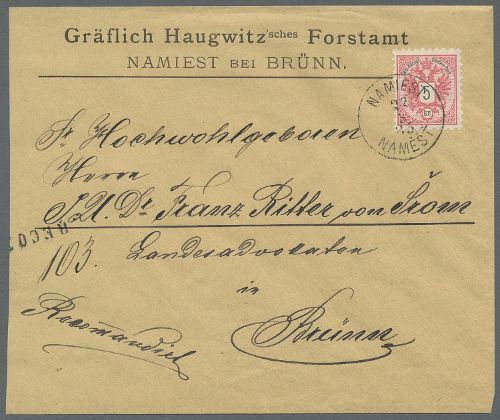 Gräflich Haugwitz'sches Forstamt
NAMIEST BEI BRÜNN.
5
kr.
NAMIEST
NAMEST
Sr Hochwohlgeboren
Herrn
J. U. Dr Franz Ritter von Šrom
RECO
103. Landesadvokaten
in
Recommandirt
Brünn